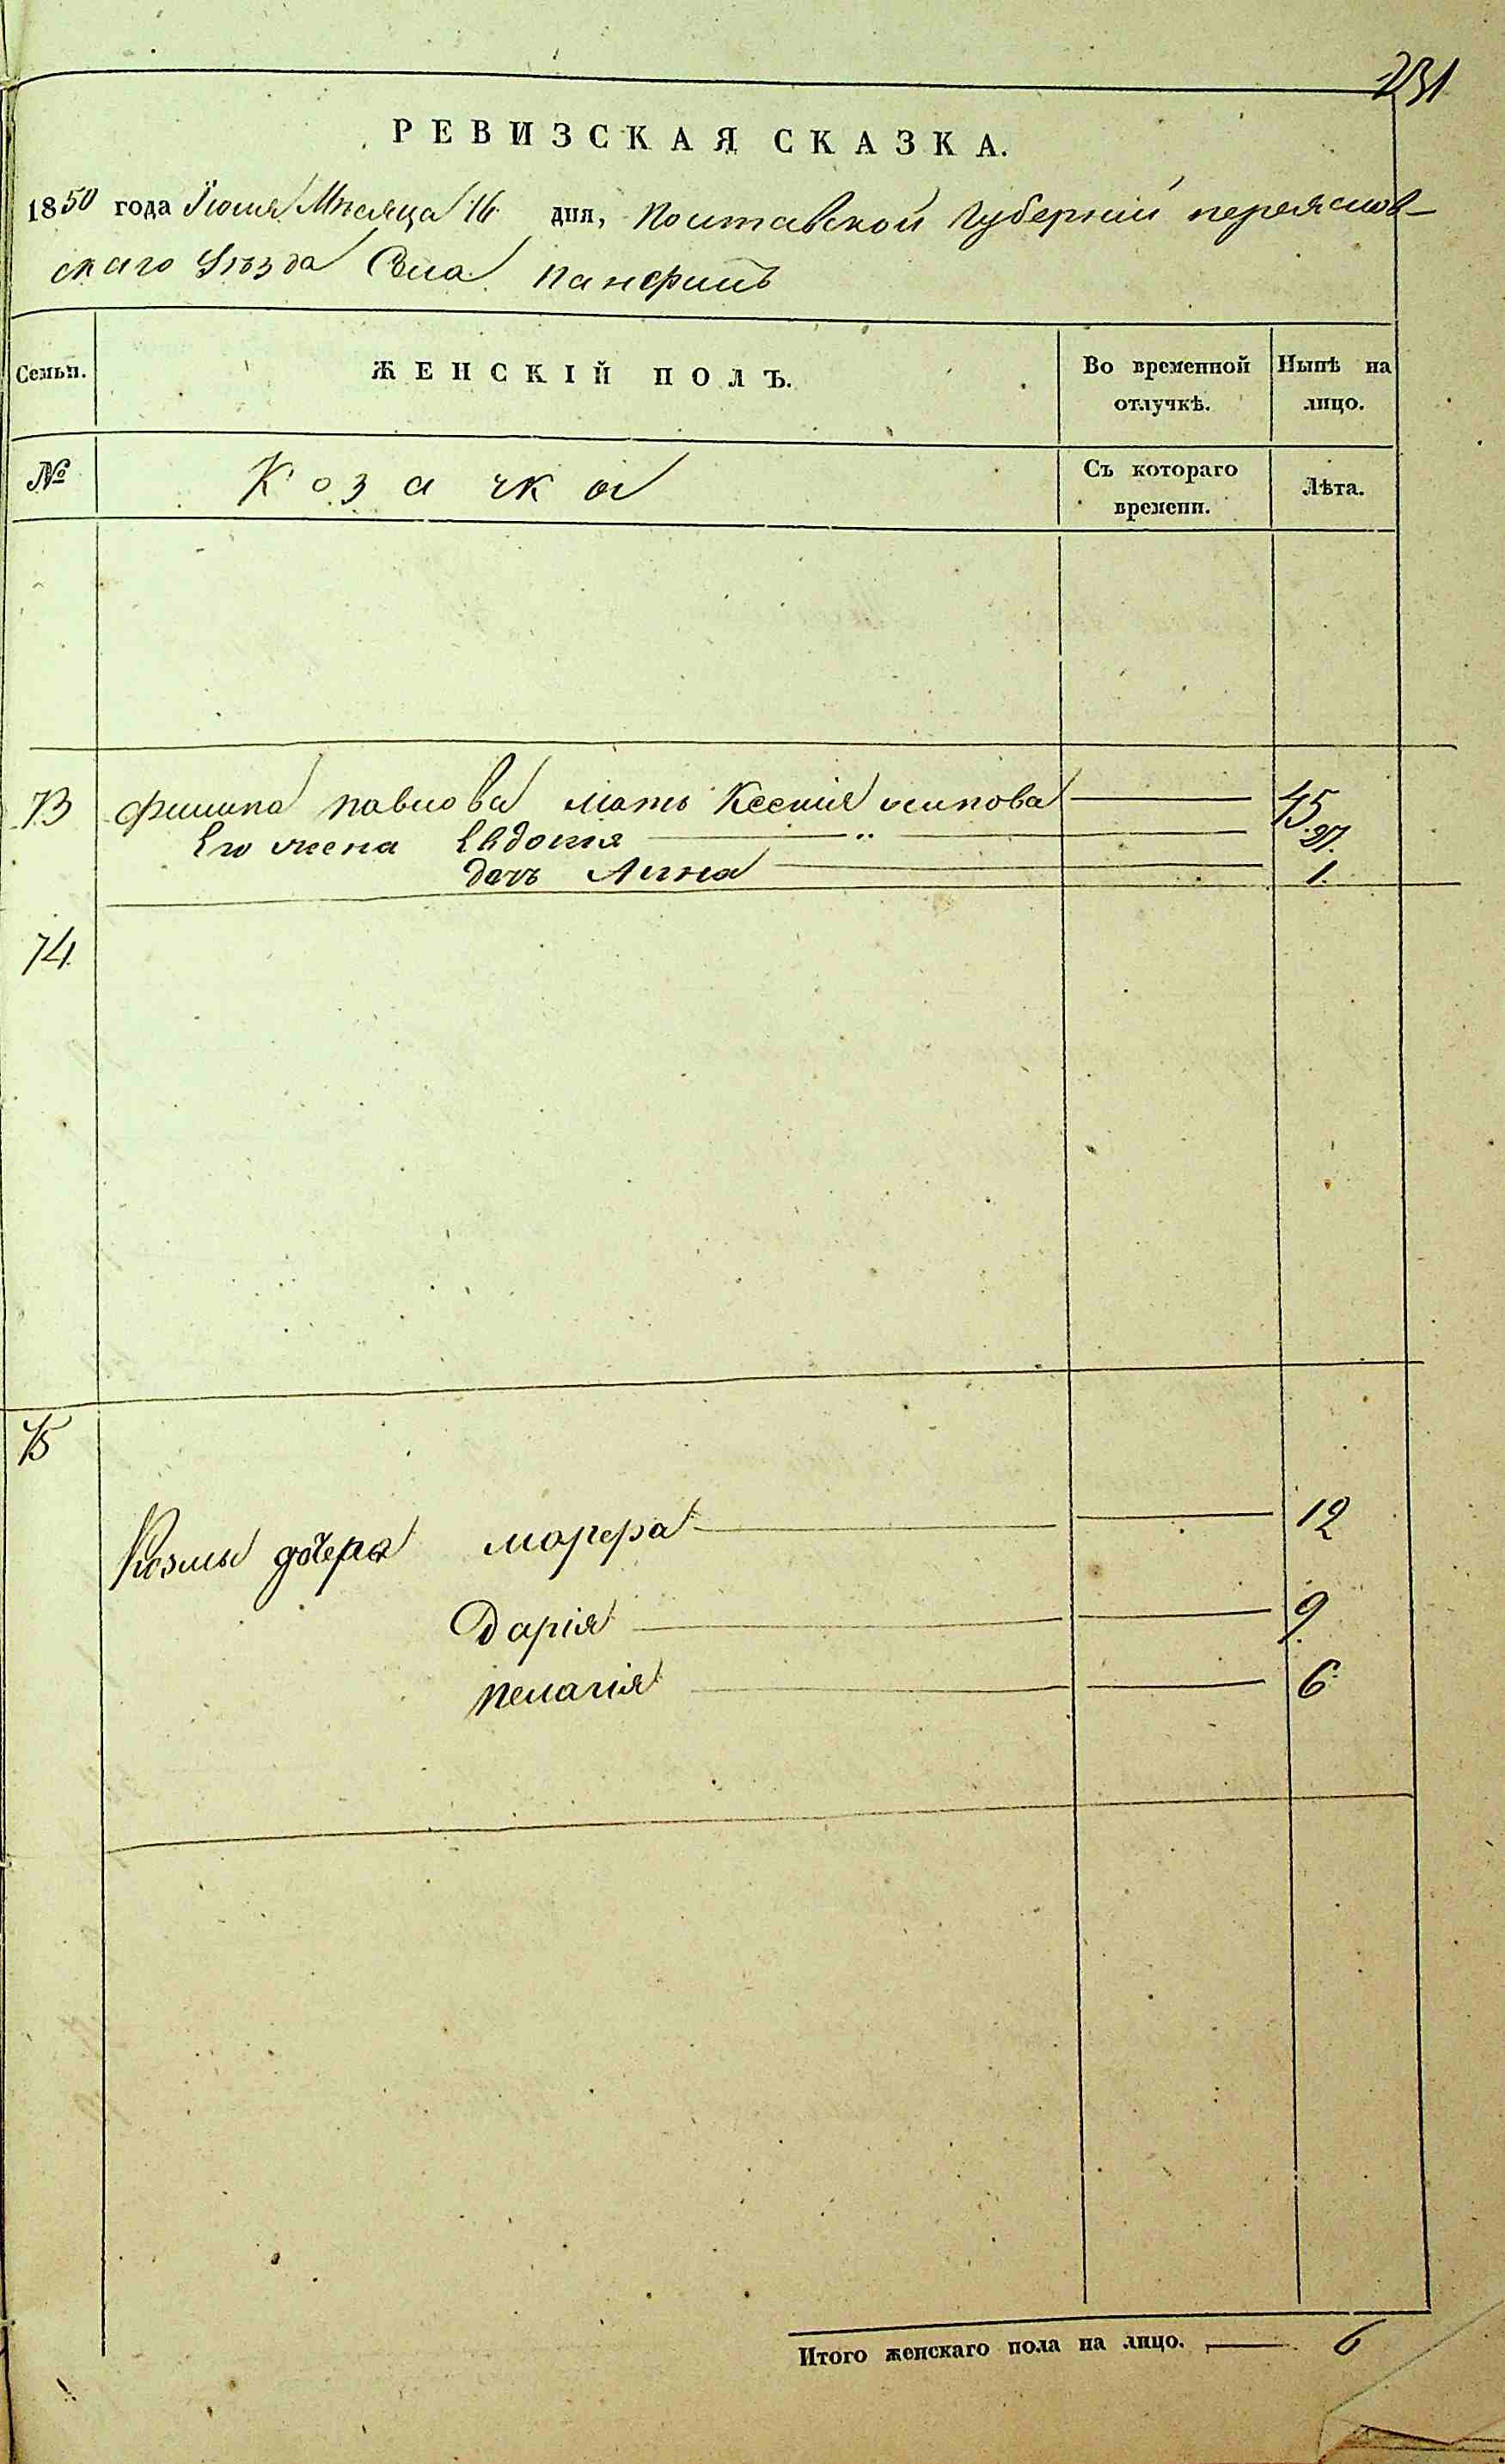 231
РЕВИЗСКАЯ СКАЗКА.
1850 года Іюля Мѣсяца 16 дня, Полтавской Губерніи переяслов-
скаго Уѣзда Села Панфилъ
Семьи. ЖЕНСКІЙ ПОЛЪ. Во временной отлучкѣ. Нынѣ на лицо.
№ Козачки Съ котораго времени. Лѣта.
73 Филипа павлова мать Ксенія осипова 45
Его жена Евдокия 27.
дочь Анна 1.
74.
75
Козмы дочера марфра 12
Дарія 9.
пелагія 6
Итого женскаго пола на лицо. 6